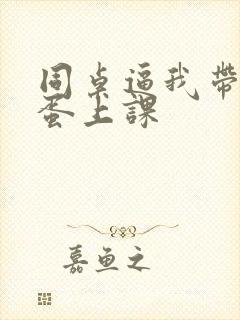 同桌逼我帶
蛋上課
嘉魚之